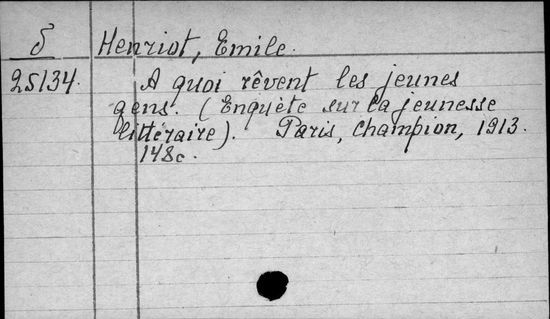 δ Henriot, Emile.
25134. A quoi rêvent les jeunes
gens. (Enquête sur la jeunesse
littéraire). Paris, Champion, 1913.
148c.